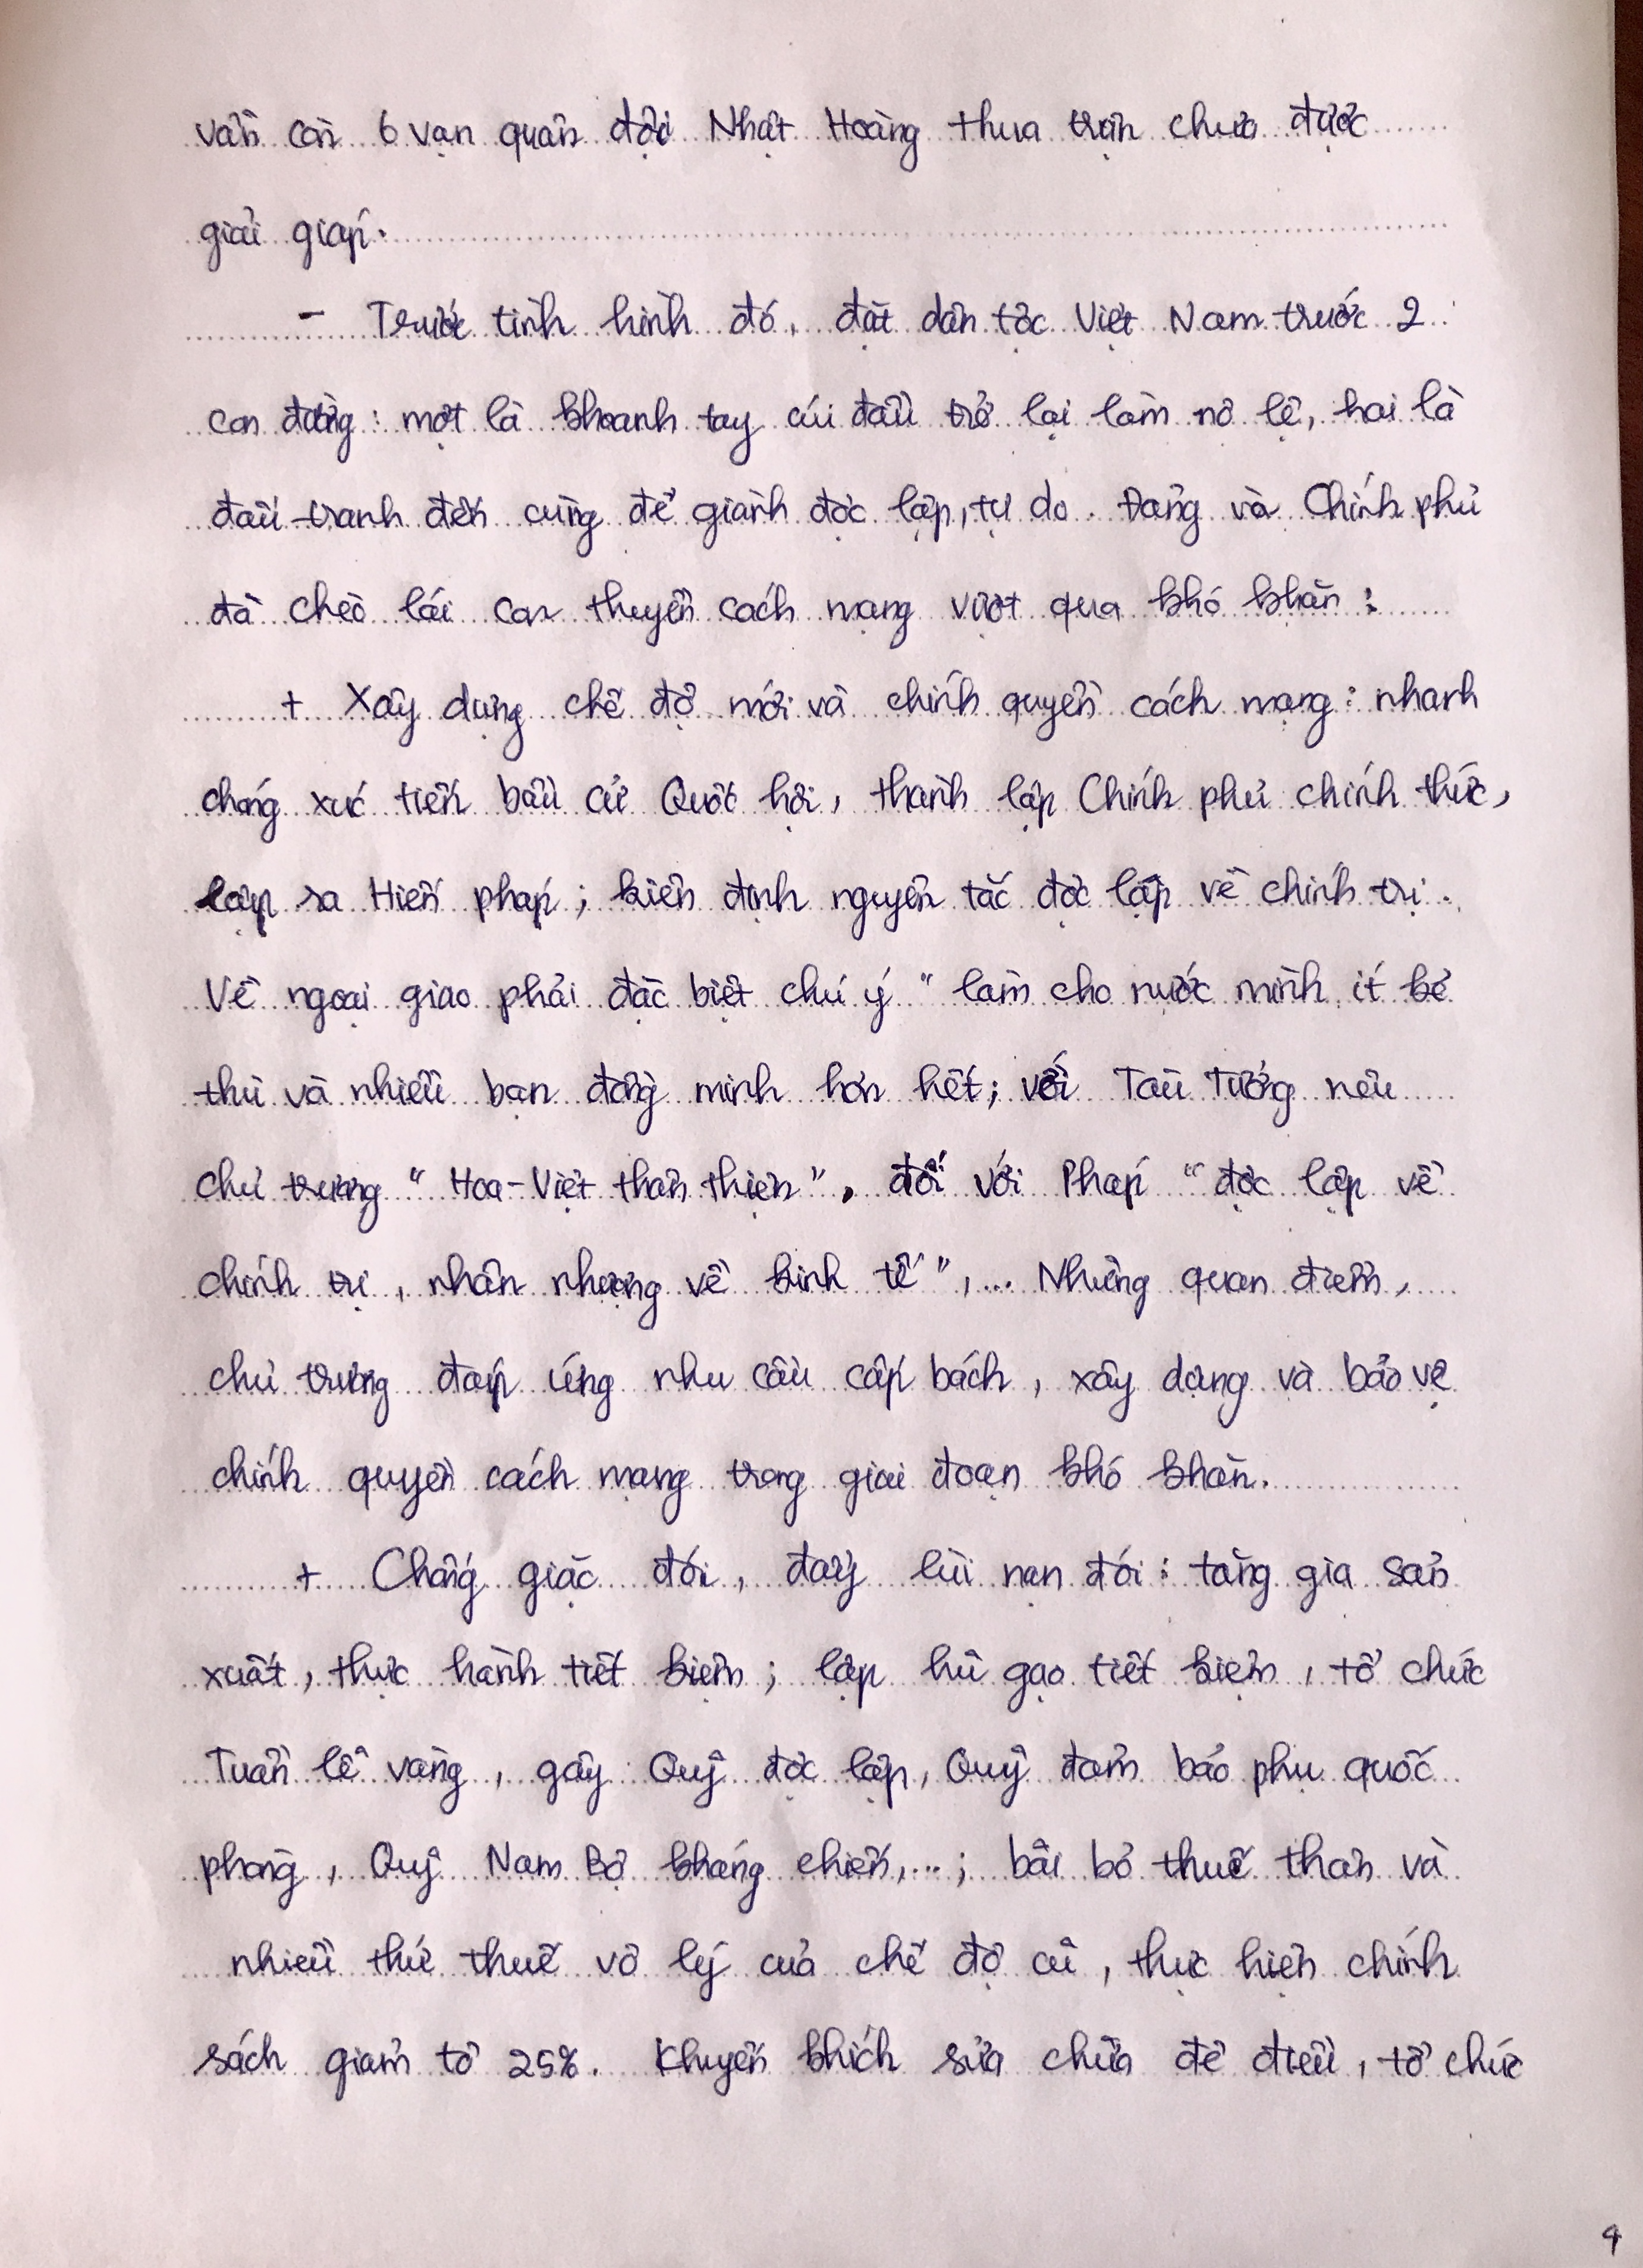 vẫn còn 6 vạn quân đội Nhật Hoàng thua trận chưa được
giải giáp.
- Trước tình hình đó, đặt dân tộc Việt Nam trước 2
con đường: một là khoanh tay cúi đầu trở lại làm nô lệ, hai là
đấu tranh đến cùng để giành độc lập, tự do. Đảng và Chính phủ
đã chèo lái con thuyền cách mạng vượt qua khó khăn:
+ Xây dựng chế độ mới và chính quyền cách mạng: nhanh
chóng xúc tiến bầu cử Quốc hội, thành lập Chính phủ chính thức,
lập ra Hiến pháp; kiên định nguyên tắc độc lập về chính trị.
Về ngoại giao phải đặc biệt chú ý "làm cho nước mình ít kẻ
thù và nhiều bạn đồng minh hơn hết; với Tàu Tưởng nêu
chủ trương "Hoa-Việt thân thiện", đối với Pháp "độc lập về
chính trị, nhân nhượng về kinh tế",... Những quan điểm,
chủ trương đáp ứng nhu cầu cấp bách, xây dựng và bảo vệ
chính quyền cách mạng trong giai đoạn khó khăn.
+ Chống giặc đói, đẩy lùi nạn đói: tăng gia sản
xuất, thực hành tiết kiệm; lập hũ gạo tiết kiệm, tổ chức
Tuần lễ vàng, gây Quỹ độc lập, Quỹ đảm bảo phụ quốc
phòng, Quỹ Nam Bộ kháng chiến,...; bãi bỏ thuế thân và
nhiều thứ thuế vô lý của chế độ cũ, thực hiện chính
sách giảm tô 25%. Khuyến khích sửa chữa đê điều, tổ chức
4